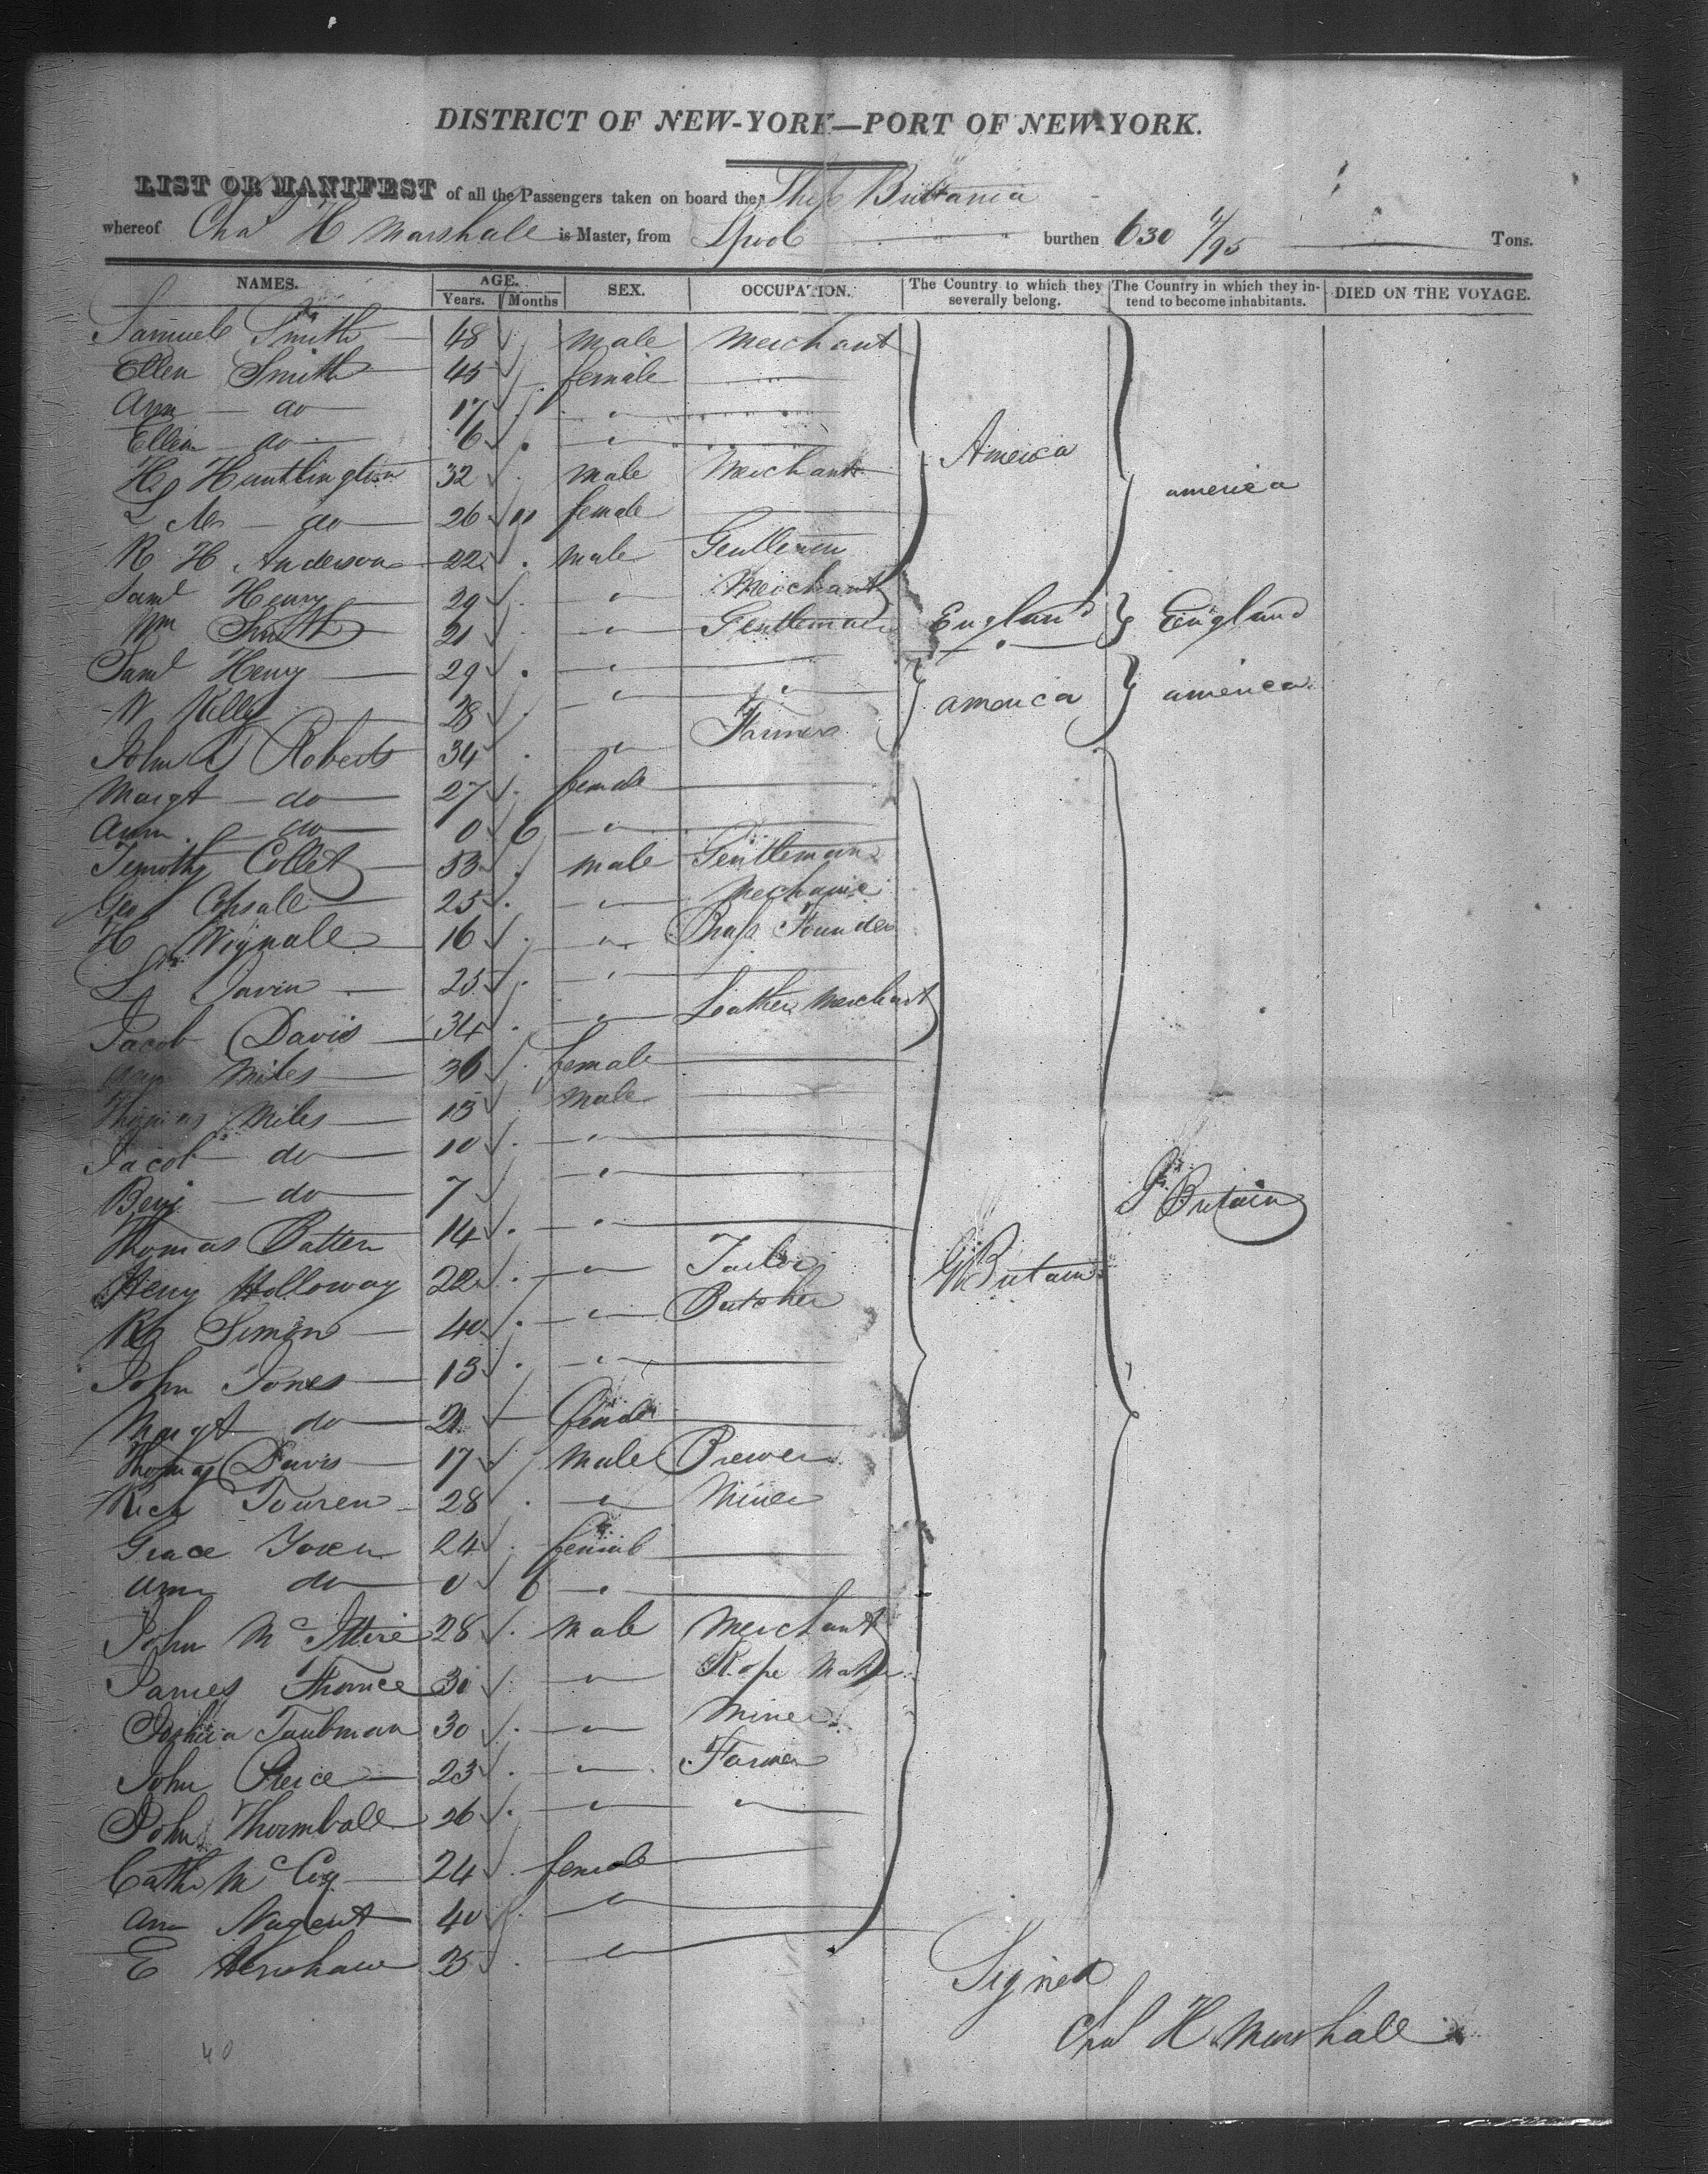 DISTRICT OF NEW-YORK—PORT OF NEW-YORK.
LIST OR MANIFEST of all the Passengers taken on board the Ship Brittania
whereof Chas H Marshall is Master, from Lpool burthen 630 4/95 Tons.
NAMES. AGE. SEX. OCCUPATION. The Country to which they severally belong. The Country in which they intend to become inhabitants. DIED ON THE VOYAGE.
Years. Months
Samuel Smith 48 male Merchant
Ellen Smith 45 female
Ann do 17 "
Ellen do 6 "
H Huntlington 32 male Merchant America
do 26 11 female america
R H Anderson 22 male Gentleman
Saml Henry 29 " Merchant
Wm Smith 21 " Gentleman England England
Saml Henry 29 "
W Kelly 28 " " america america
John Roberts 34 " Farmer
Margt do 27 female
Ann do 0 6 "
Timothy Collet 53 male Gentleman
Geo Copsall 25 " Mechanic
H Wignall 16 " Brass Founder
Javin 25 "
Jacob Davis 34 " Leather Merchant
Ann Miles 36 female
Thomas Miles 13 male
Jacob do 10 "
Benj do 7 " Gt Britain
Thomas Batten 14 "
Henry Holloway 22 " Tailor Gt Britain
Simon 40 " Butcher
John Jones 13 "
Margt do 21 female
Thomas Davis 17 male Brewer
Rich Touren 28 " Miner
Grace 24 female
Ann do 0 6 "
John Mc 28 male Merchant
James 30 " Rope Maker
Joshua Taubman 30 " Miner
John Pierce 23 " Farmer
John 26 " "
Cath Mc Coy 24 female
Ann Nugent 40 "
E Kershaw 35 "
Signed
Chas H Marshall
40